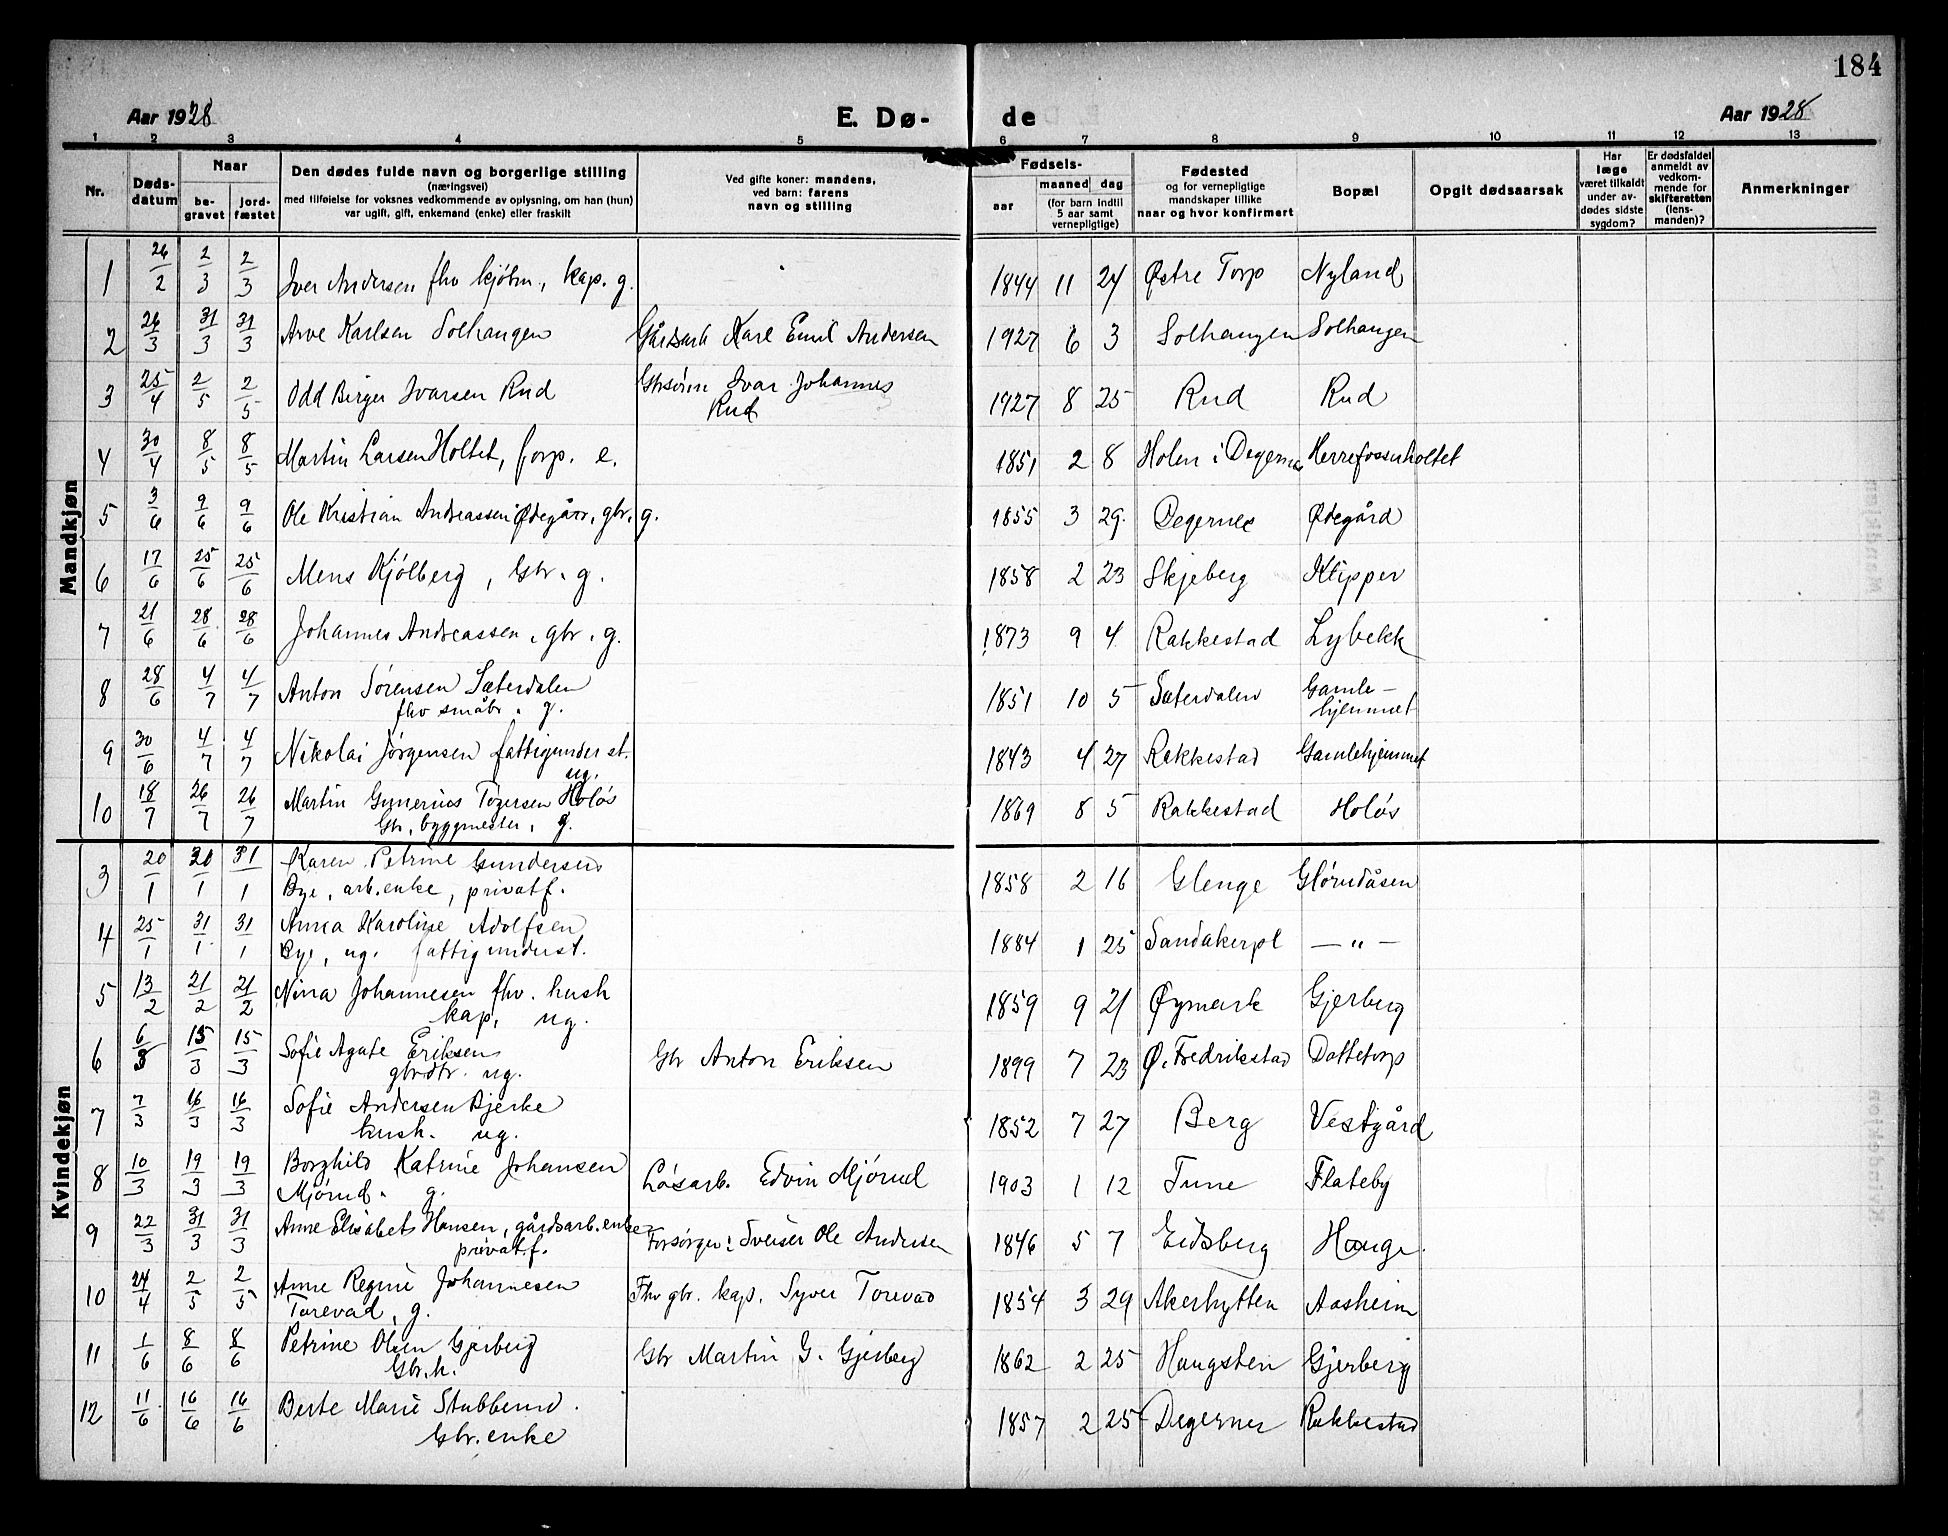 184
Aar 1928 E. Dø- de Aar 1928
1 2 3 4 5 6 7 8 9 10 11 12 13
Nr. Døds-datum Naar be-gravet jord-fæstet Den dødes fulde navn og borgerlige stilling (næringsvei) med tilføielse for voksnes vedkommende av oplysning, om han (hun) var ugift, gift, enkemand (enke) eller fraskilt Ved gifte koner: mandens, ved barn: farens navn og stilling Fødsels- aar maaned dag (for barn indtil 5 aar samt vernepligtige) Fødested og for vernepligtige mandskaper tillike naar og hvor konfirmert Bopæl Opgit dødsaarsak Har læge været tilkaldt under av-dødes sidste sygdom? Er dødsfaldet anmeldt av vedkom-mende for skifteretten (lens-manden)? Anmerkninger
Mandkjøn
1 26/2 2/3 2/3 Iver Andersen fhv kjøbm, kap. g. 1844 11 24 Østre Torp Nyland
2 26/3 31/3 31/3 Arve Karlsen Solhaugen Gårdsarb Karl Emil Andersen 1927 6 3 Solhaugen Solhaugen
3 25/4 2/5 2/5 Odd Birger Ivarsen Rud Gbrsønn Ivar Johannes
Rud 1927 8 25 Rud Rud
4 30/4 8/5 8/5 Martin Larsen Holtet, forp. e. 1851 2 8 Holen i Degernes Herrefossenholtet
5 3/6 9/6 9/6 Ole Kristian Andreassen Ødegård, gbr. g. 1855 3 29. Degernes Ødegård
6 17/6 25/6 25/6 Mens Kjølberg, Gbr. g. 1858 2 23 Skjeberg Klipper
7 21/6 28/6 28/6 Johannes Andreassen, gbr. g. 1873 9 4 Rakkestad Lybekk
8 28/6 4/7 4/7 Anton Sørensen Sæterdalen
fhv småbr. g. 1851 10 5 Sæterdalen Gamle-
hjemmet
9 30/6 4/7 4/7 Nikolai Jørgensen fattigunderst.
ug. 1843 4 27 Rakkestad Gamlehjemmet
10 18/7 26/7 26/7 Martin Gunerius Torgersen Holøs
Gbr, byggmester, g. 1869 8 5 Rakkestad Holøs
Kvindekjøn
3 20/1 30/1 31/1 Karen Petrine Gundersen
Bye, arb.enke, privatf. 1858 2 16 Glenge Glørudåsen
4 25/1 31/1 31/1 Anna Karoline Adolfsen
Bye, ug. fattigunderst. 1884 1 25 Sandakerpl — " —
5 13/2 21/2 21/2 Nina Johannesen fhv. hush
kap, ug. 1859 9 21 Øymark Gjerberg
6 6/3 15/3 15/3 Sofie Agate Eriksen
gbrdtr. ug. Gbr Anton Eriksen 1899 7 23 Ø. Fredrikstad Dattetorp
7 7/3 16/3 16/3 Sofie Andersen Bjerke
hush. ug. 1852 7 27 Berg Vestgård
8 10/3 19/3 19/3 Borghild Katrine Johansen
Mjørud. g. Løsarb. Edvin Mjørud 1903 1 12 Tune Flateby
9 22/3 31/3 31/3 Anne Elisabet Hansen, gårdsarb. enke
privatf. Forsørger: Sveiser Ole Andersen 1846 5 7 Eidsberg Hauge.
10 24/4 2/5 2/5 Anne Regine Johannesen
Torevad, g. Fhv gbr. kap. Syver Torevad 1854 3 29 Akerhytten Aasheim
11 1/6 8/6 8/6 Petrine Olsen Gjerberg
Gbr.h. Gbr Martin G. Gjerberg 1862 2 25 Haugsten Gjerberg
12 11/6 16/6 16/6 Berte Marie Stubberud.
Gbr. enke 1857 2 25 Degernes Rakkestad